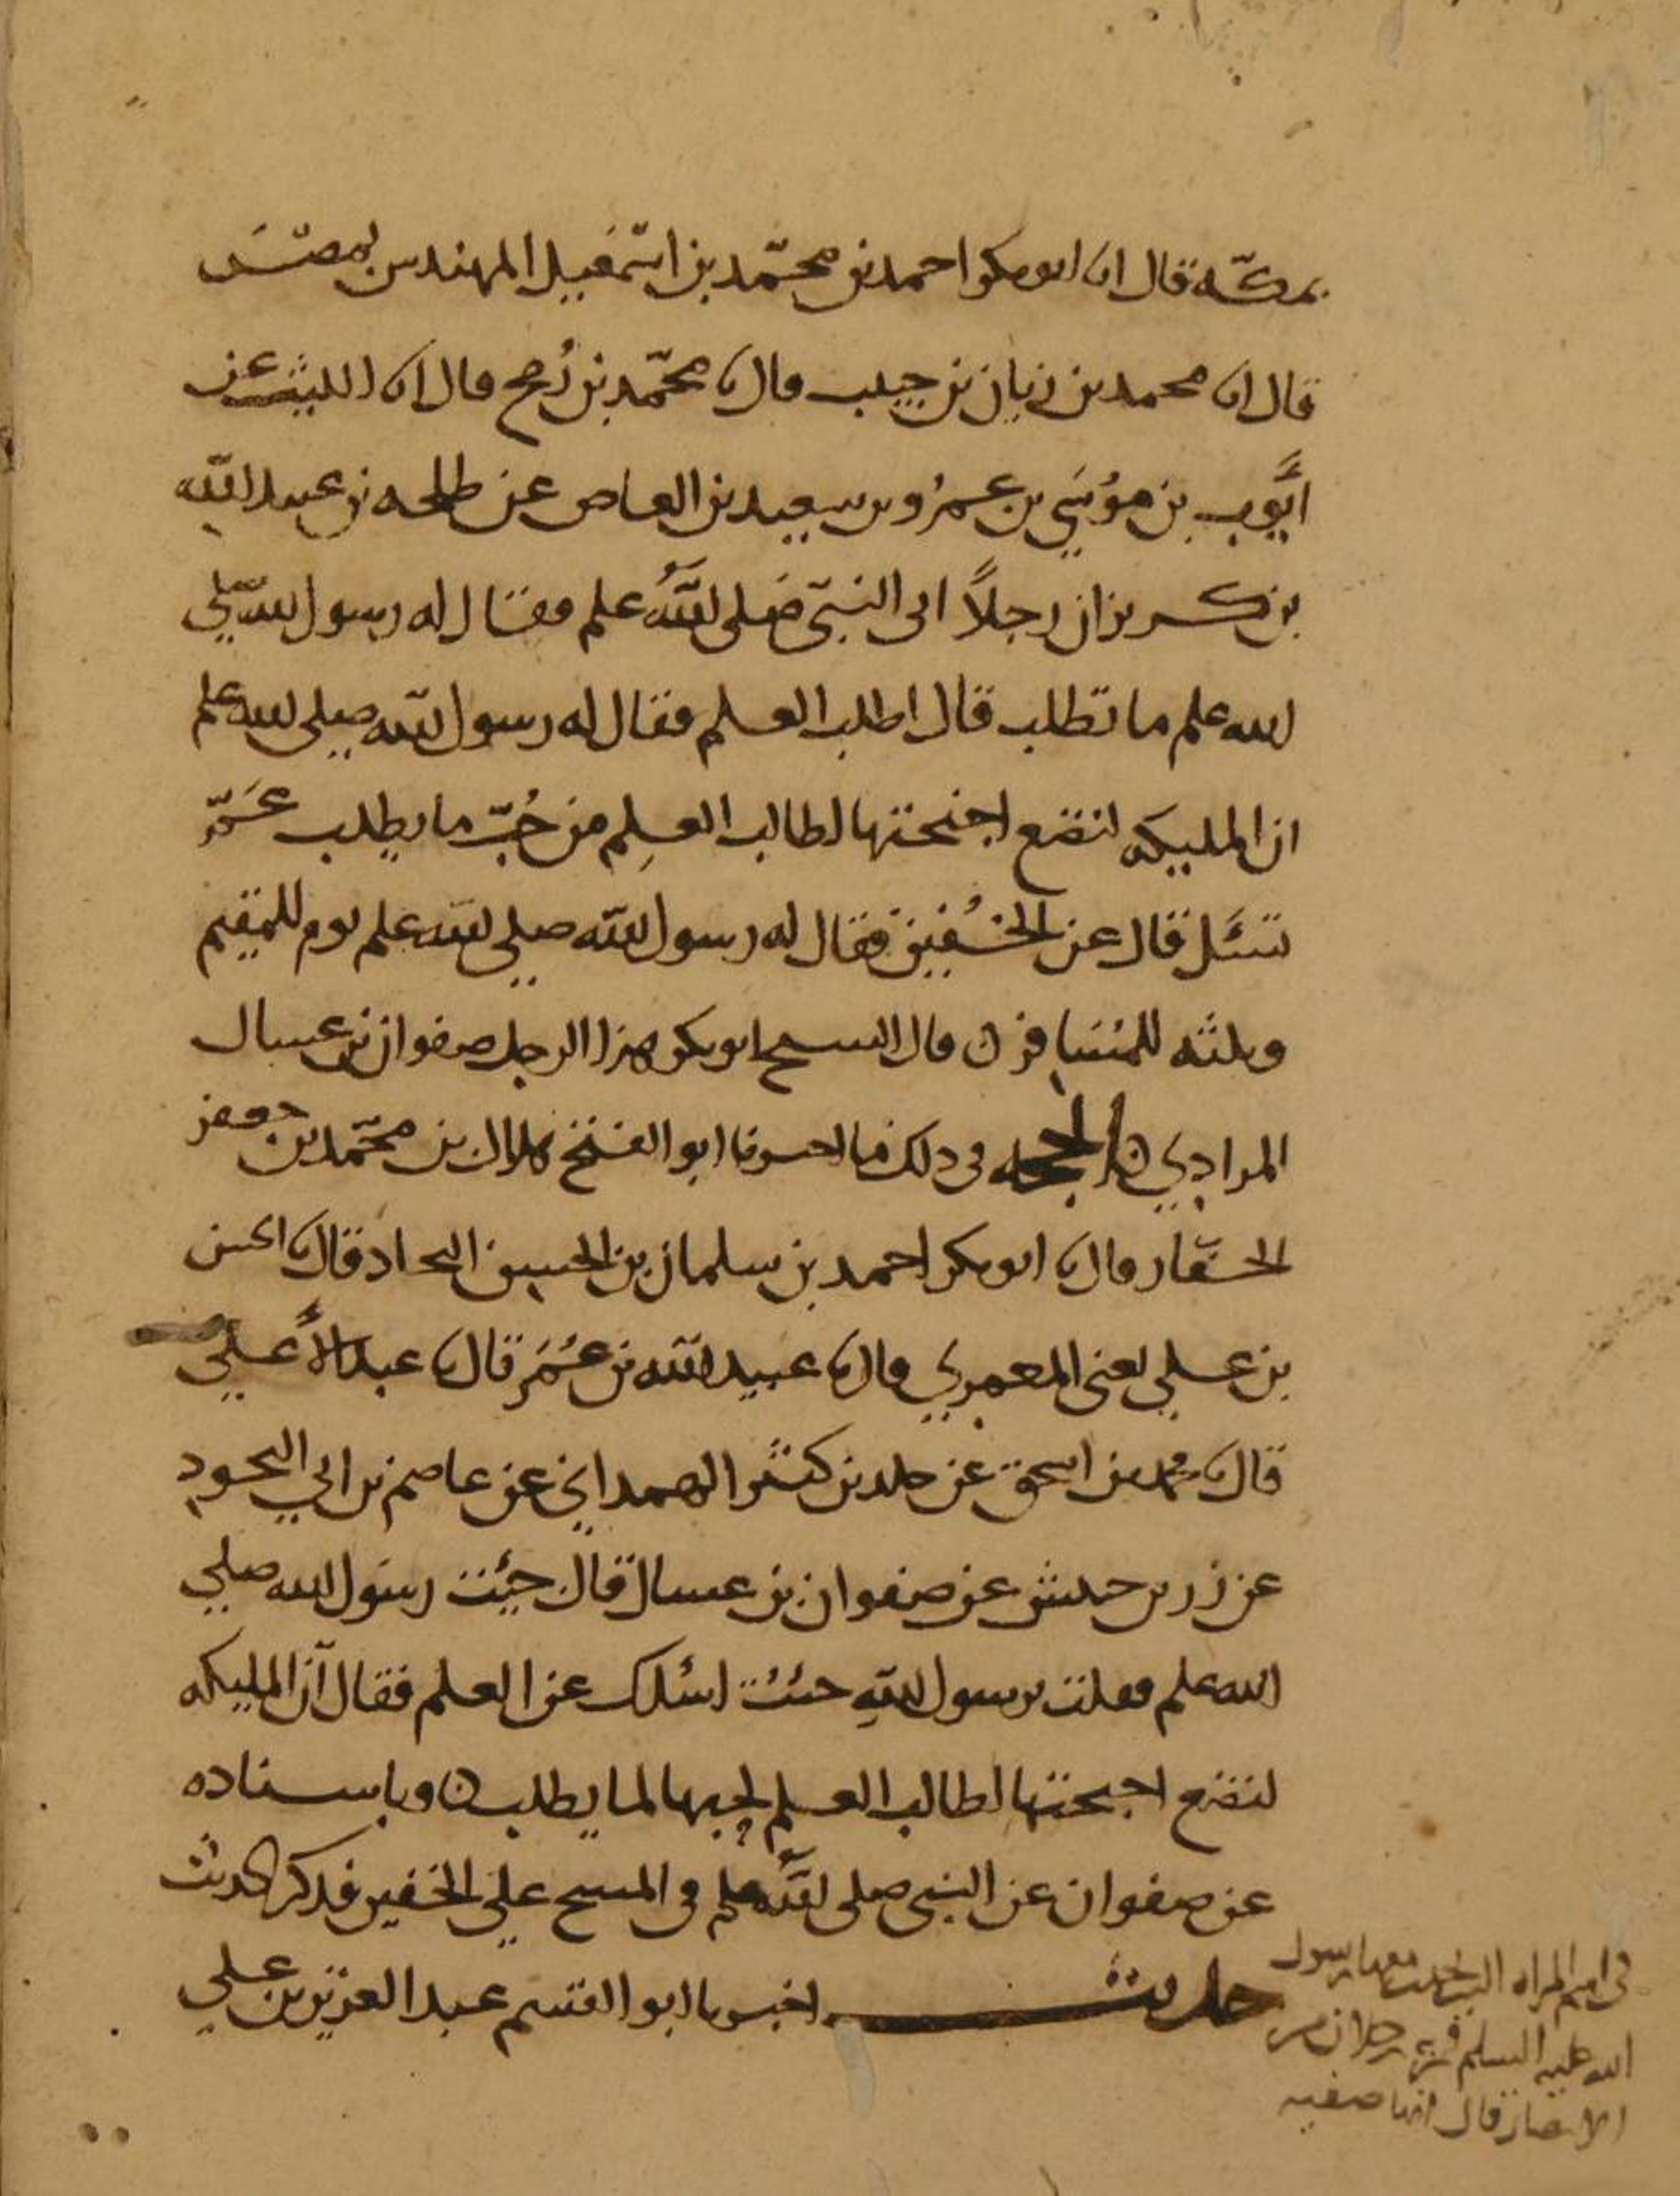 بمكّة قال انا ابو بكر احمد بن محمّد بن اسمعيل المهندس بمصر
قال انا محمد بن زبان بن حبيب قال نا محمّد بن رُمح قال انا الليث عن
ايّوب بن موسي بن عمرو بن سعيد بن العاص عن طلحه بن عبيد الله
بن كريز ان رجلاً اتى النبيّ صلى اللهُ علم فقال له رسول الله صلي
الله علم ما تطلب قال اطلب العلم فقال له رسول الله صلى الله علم
ان المليكه لتضع اجنحتها لطالب العلم من حُبّ ما يطلب عَمّ
تسَئل قال عن الخُفين فقال له رسول الله صلي الله علم يوم للمقيم
وثلثه للمسافر ن قال الشيخ ابو بكر هذا الرجل صفوان بن عسال
المرادي ن الحجه فى ذلك ما اخبرنا ابو الفتح هلال بن محمّد بن جعفر
الحفّار قال نا ابو بكر احمد بن سلمان بن الحسين النجاد قال نا الحسن
بن علي يعنى المعمري قال نا عبيد الله بن عُمَر قال نا عبد الأعلي
قال نا محمد بن اسحق عن خلد بن كثير الهمداني عن عاصم بن ابي النجود
عن زر بن حبيش عن صفوان بن عسال قال جيئت رسول الله صلي
الله علم فقلت يرسول الله جئتُ اسئلك عن العلم فقال انّ المليكه
لتضع اجنحتها لطالب العلم لحبها لما يطلب ن وباسناده
عن صفوان عن النبى صلى اللهُ علم فى المسح علي الخفين فذكر الحديث
حديث اخبرنا ابو القسم عبد العزيز بن علي
فى اسم المراه التى معها رسول
الله عليه السلم فمر رجلان من
الانصار قال انها صفيه